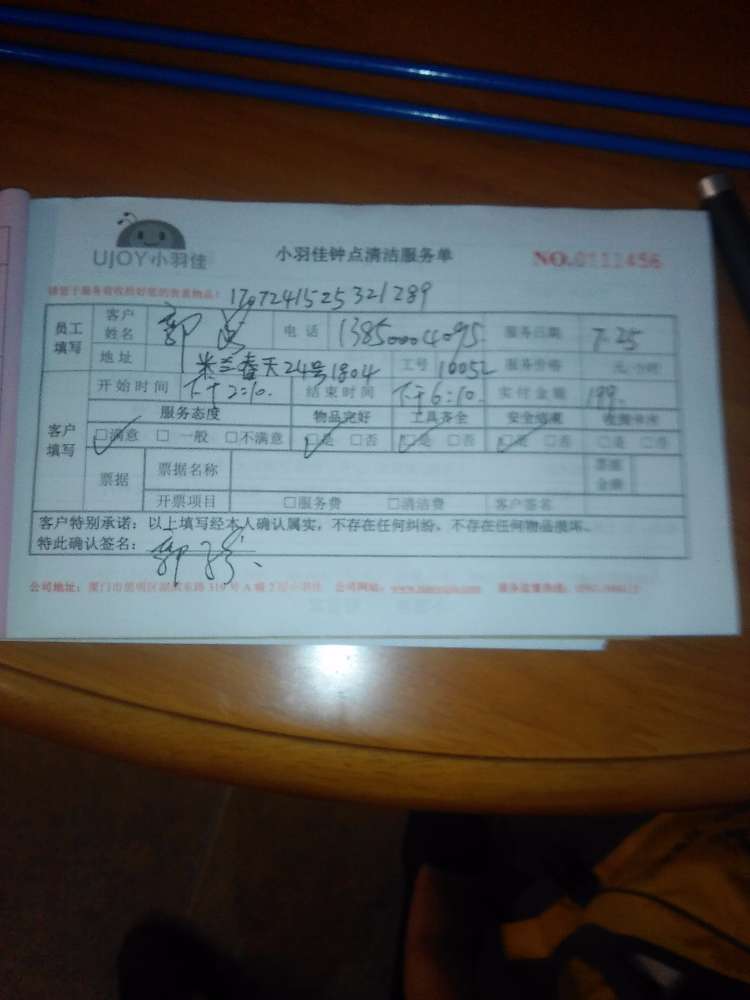 UJOY小羽佳
小羽佳钟点清洁服务单
NO.0111456
1707241525321289
员工填写 客户姓名 郭 电话 13850004095 服务日期 7.25
地址 米兰春天24号1804 工号 10052 服务价格 元/小时
开始时间 下午2:10. 结束时间 下午6:10. 实付金额 199.
客户填写 服务态度 物品完好 工具齐全 安全结束
☑满意 □一般 □不满意 ☑是 □否 ☑是 □否 ☑是 □否 □是 □否
票据 票据名称 票据金额
开票项目 □服务费 □清洁费 客户签名
客户特别承诺：以上填写经本人确认属实，不存在任何纠纷，不存在任何物品损坏。
特此确认签名：郭
公司地址：厦门市思明区湖滨东路319号A幢2层小羽佳 公司网站： 服务监督热线：